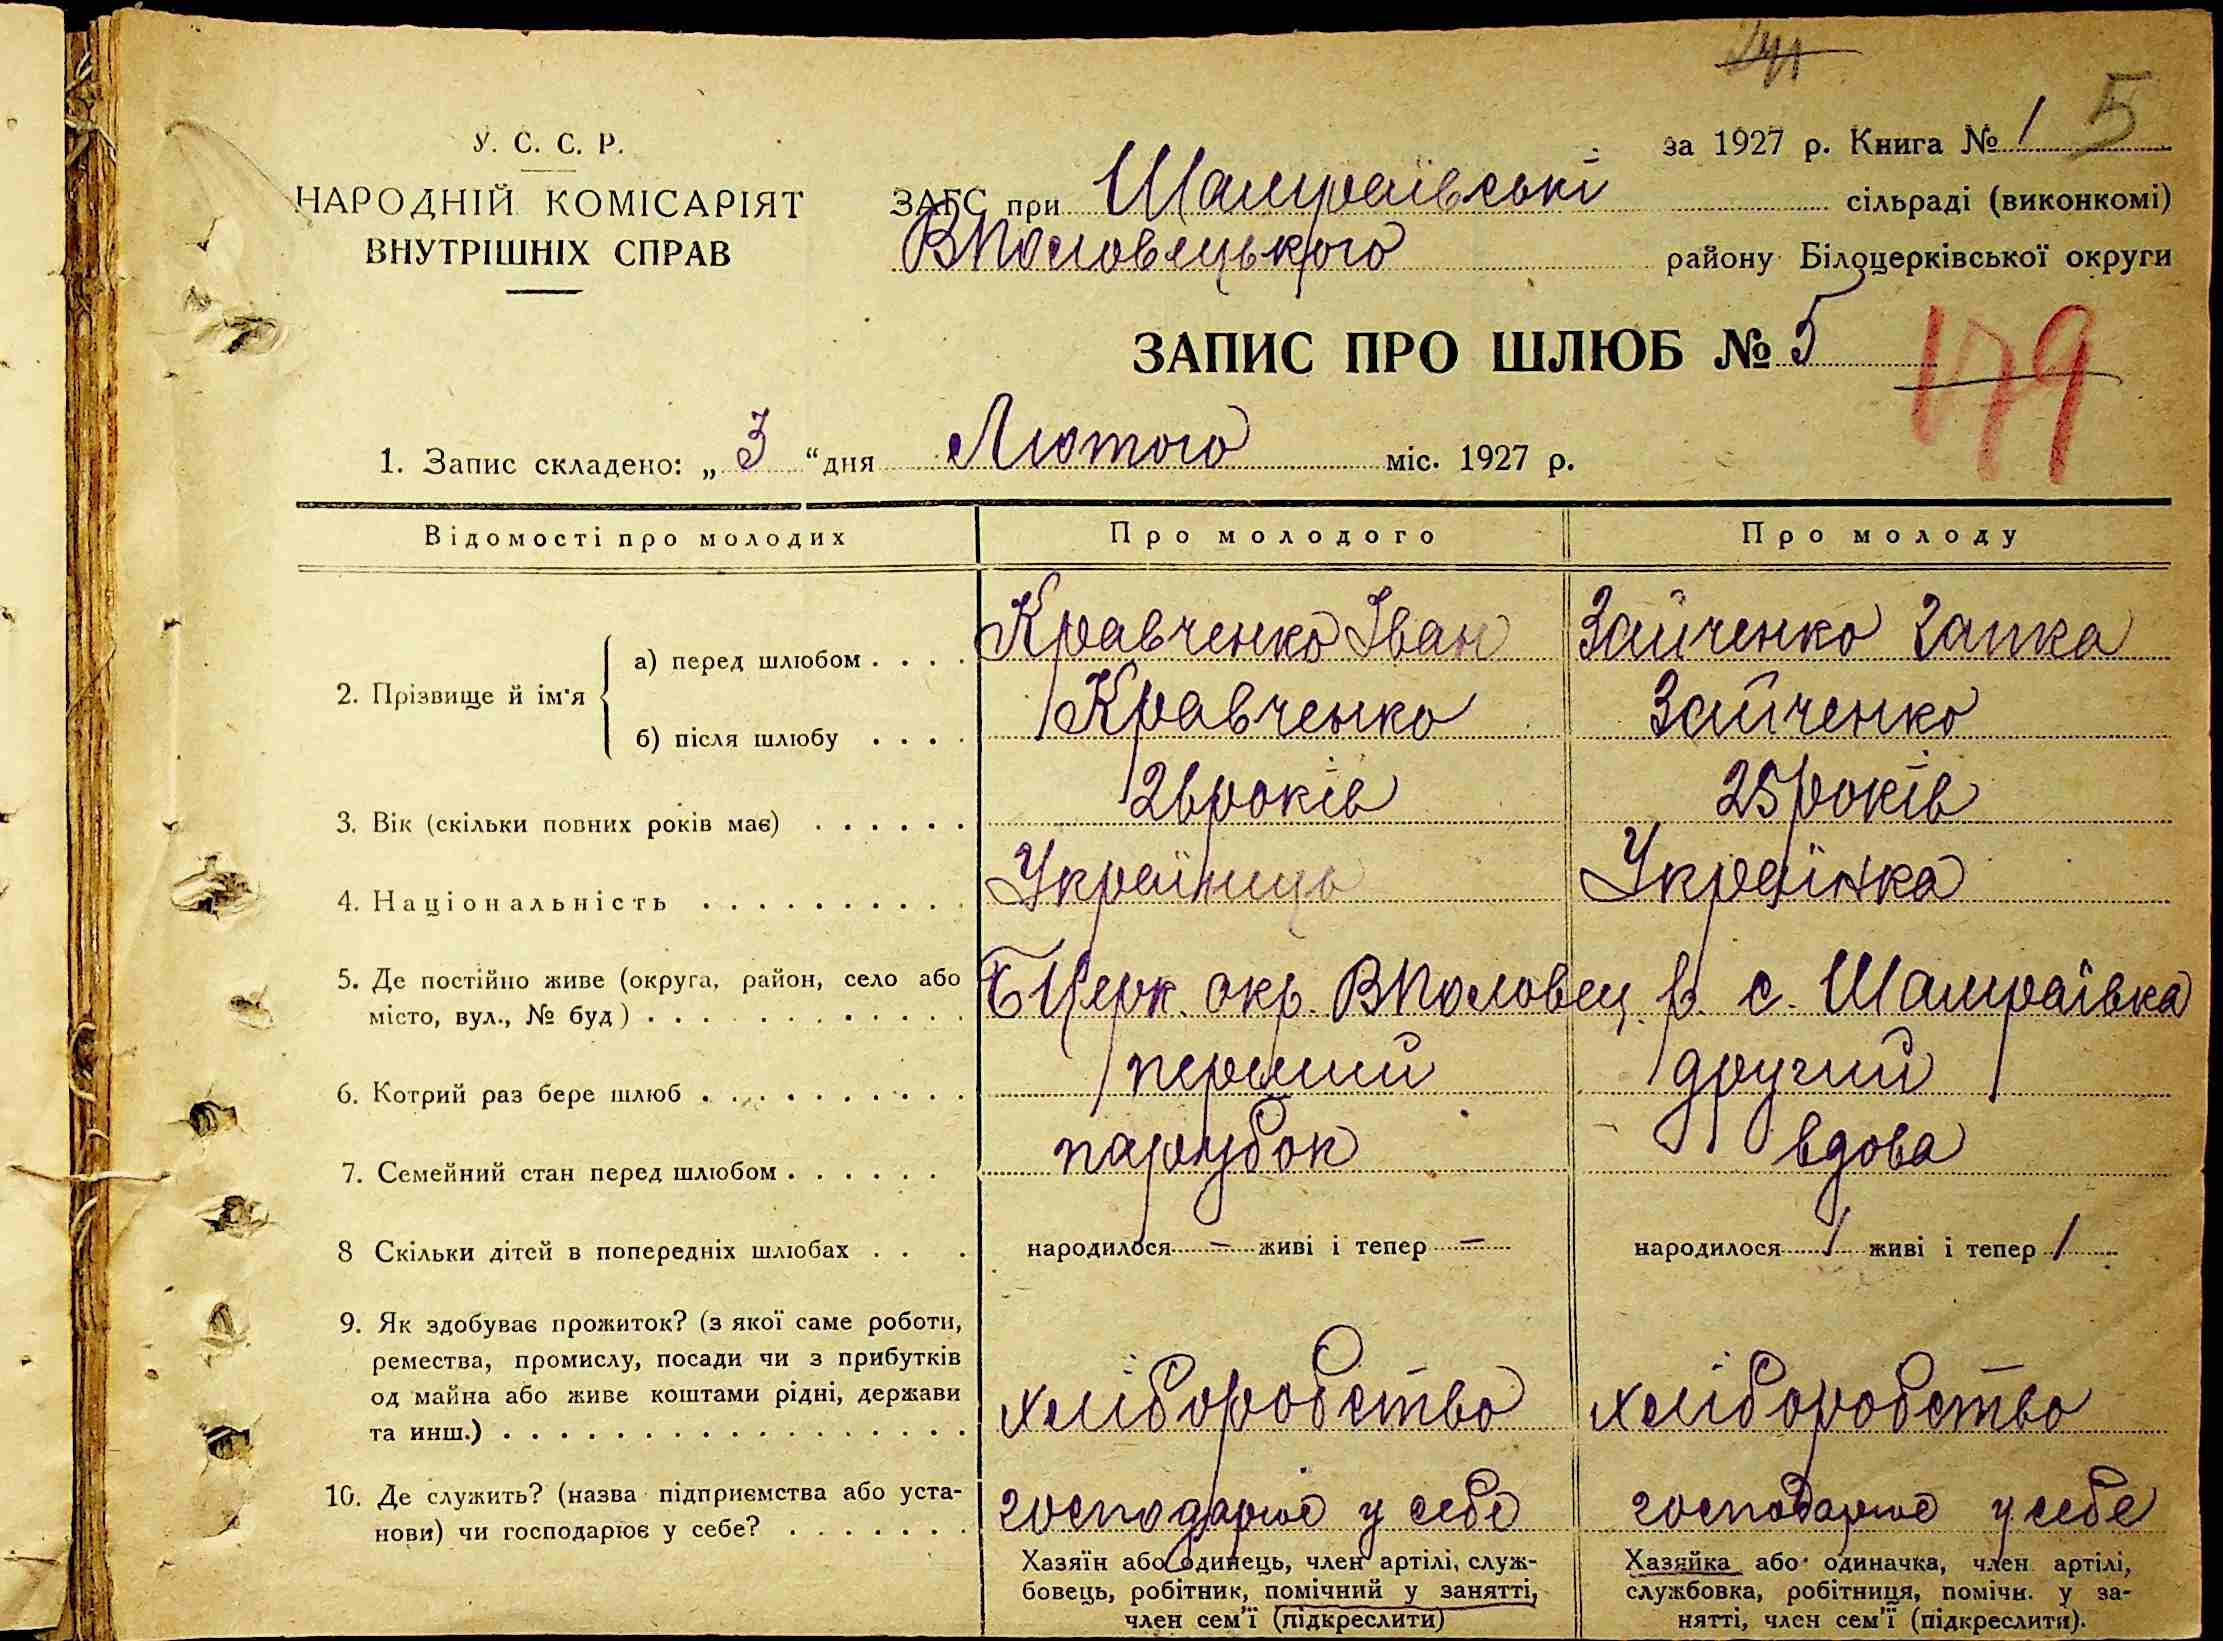 24
за 1927 р. Книга № 1 5
У. С. С. Р.
НАРОДНІЙ КОМІСАРІЯТ
ВНУТРІШНІХ СПРАВ
ЗАГС при Шамраївські сільраді (виконкомі)
ВПоловецького району Білоцерківської округи
ЗАПИС ПРО ШЛЮБ № 5
179
1. Запис складено: „ 3 “ дня Лютого міс. 1927 р.
Відомості про молодих Про молодого Про молоду
2. Прізвище й ім'я
а) перед шлюбом . . . . Кравченко Іван Зайченко Гапка
б) після шлюбу . . . . Кравченко Зайченко
3. Вік (скільки повних років має) . . . . . . 26 років 25 років
4. Національність . . . . . . . . . . Українець Українка
5. Де постійно живе (округа, район, село або
місто, вул., № буд) . . . . . . . . . . . БЦерк. окр. ВПоловец. р. с. Шамраївка
6. Котрий раз бере шлюб . . . . . . . . . . перший другий
7. Семейний стан перед шлюбом . . . . . . парубок вдова
8 Скільки дітей в попередніх шлюбах . . . народилося – живі і тепер – народилося 1 живі і тепер 1
9. Як здобуває прожиток? (з якої саме роботи,
ремества, промислу, посади чи з прибутків
од майна або живе коштами рідні, держави
та инш.) . . . . . . . . . . . . . . . . . хліборобство хліборобство
10. Де служить? (назва підприємства або уста-
нови) чи господарює у себе? . . . . . . . господарює у себе господарює у себе
Хазяїн або одинець, член артілі, служ-
бовець, робітник, помічний у занятті,
член сем'ї (підкреслити)
Хазяйка або одиначка, член артілі,
службовка, робітниця, помічн. у за-
нятті, член сем'ї (підкреслити).